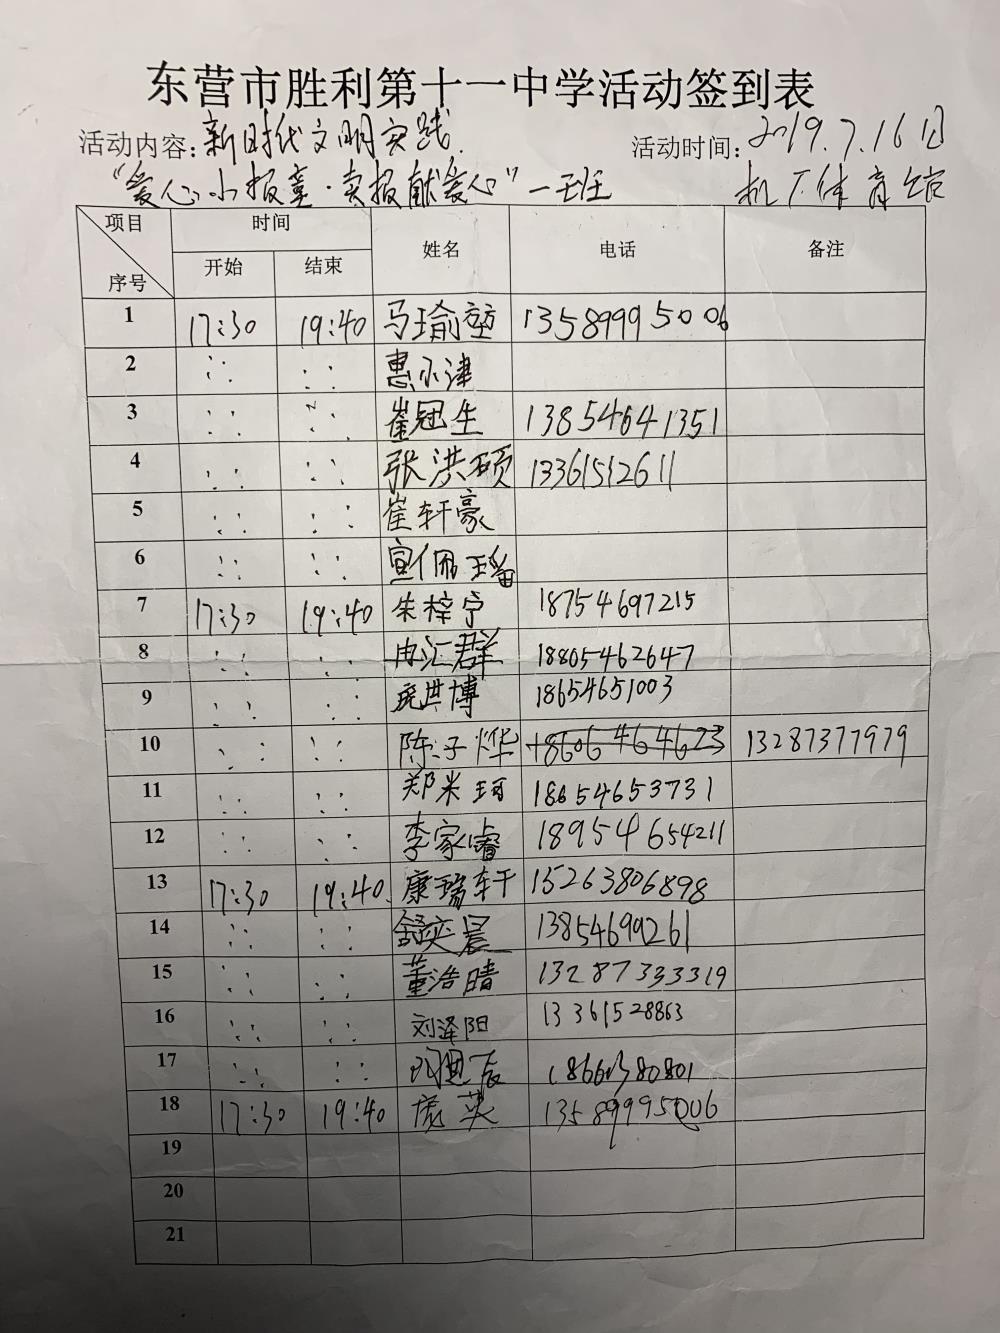 东营市胜利第十一中学活动签到表
活动内容: 新时代文明实践. 活动时间: 2019.7.16日
“爱心小报童·卖报献爱心”一班 机厂体育馆
项目 时间 姓名 电话 备注
序号 开始 结束
1 17:30 19:40 马瑜堃 13589995006
2 〃 〃 惠小津
3 〃 〃 崔冠生 13854641351
4 〃 〃 张洪硕 13361512611
5 〃 〃 崔轩豪
6 〃 〃 宣佩瑶
7 17:30 19:40 朱梓宁 18754697215
8 〃 〃 冉汇群 18805462647
9 〃 〃 庞洪博 18654651003
10 〃 〃 陈子烨 18606464623 13287377979
11 〃 〃 郑米珂 18654653731
12 〃 〃 李家睿 18954654211
13 17:30 19:40 康瑞轩 15263806898
14 〃 〃 舒奕晨 13854699261
15 〃 〃 董浩晴 13287333319
16 〃 〃 刘泽阳 13361528863
17 〃 〃
18 17:30 19:40 13589995006
19
20
21